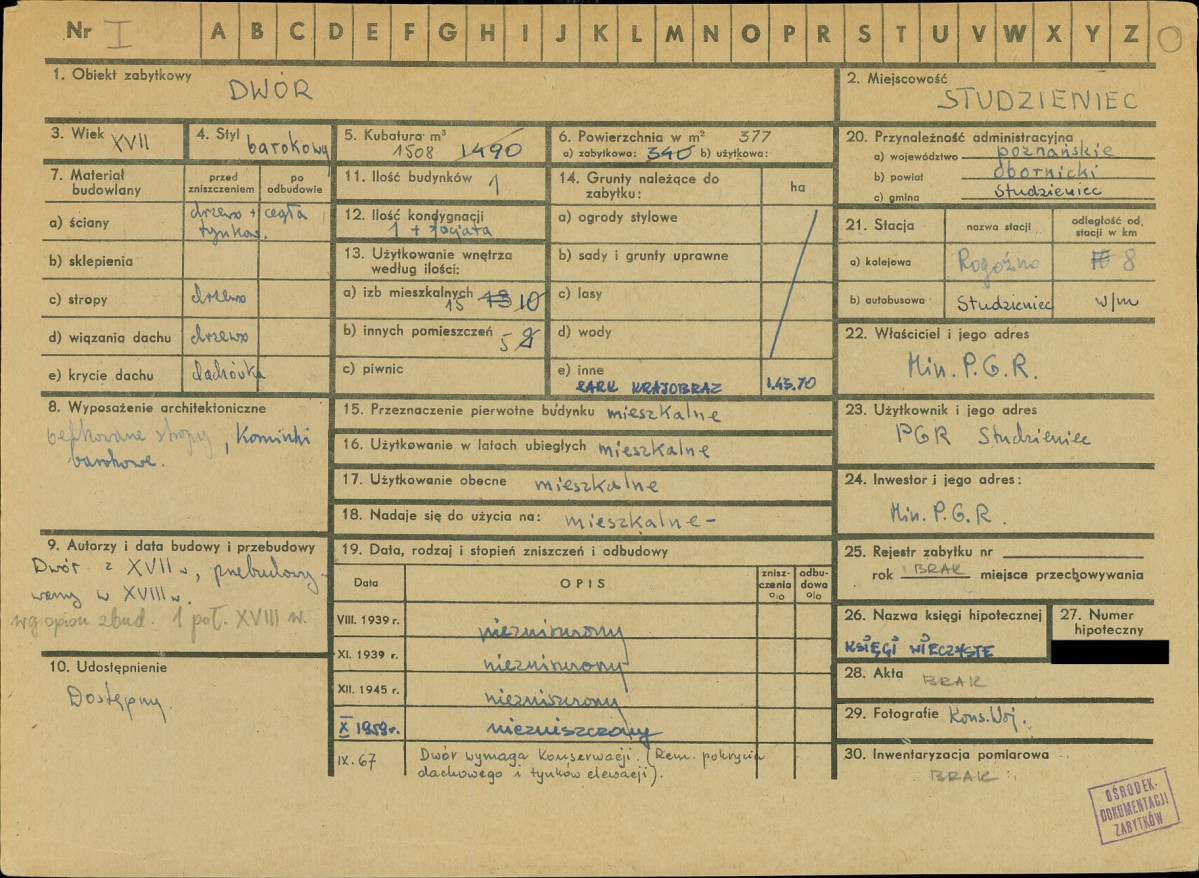 Nr I A B C D E F G H I J K L M N O P R S T U V W X Y Z
1. Obiekt zabytkowy
DWÓR
2. Miejscowość
STUDZIENIEC
3. Wiek XVII
4. Styl barokowy
5. Kubatura m³
1508 1490
6. Powierzchnia w m² 377
a) zabytkowa: 340 b) użytkowa:
7. Materiał budowlany
przed zniszczeniem
po odbudowie
a) ściany drzewo + tynkow. cegła
b) sklepienia
c) stropy drzewo
d) wiązania dachu drzewo
e) krycie dachu dachówka
8. Wyposażenie architektoniczne
belkowane stropy, Kominki
barokowe.
9. Autorzy i data budowy i przebudowy
Dwór z XVII w, przebudowy-
wany w XVIII w.
wg opisu zbud. 1 poł. XVIII w.
10. Udostępnienie
Dostępny.
11. Ilość budynków 1
12. Ilość kondygnacji
1 + facjata
13. Użytkowanie wnętrza
według ilości:
a) izb mieszkalnych
15 13 10
b) innych pomieszczeń
5
c) piwnic
14. Grunty należące do
zabytku:
ha
a) ogrody stylowe
b) sady i grunty uprawne
c) lasy
d) wody
e) inne
PARK KRAJOBRAZ 1.45.70
15. Przeznaczenie pierwotne budynku mieszkalne
16. Użytkowanie w latach ubiegłych mieszkalne
17. Użytkowanie obecne mieszkalne
18. Nadaje się do użycia na: mieszkalne -
19. Data, rodzaj i stopień zniszczeń i odbudowy
Data
OPIS
znisz-
czenia
%
odbu-
dowa
%
VIII. 1939 r. niezniszczony
XI. 1939 r. niezniszczony
XII. 1945 r. niezniszczony
X 1959 r. niezniszczony
IX. 67 Dwór wymaga Konserwacji. (Rem. pokrycia
dachowego i tynków elewacji).
20. Przynależność administracyjna
a) województwo poznańskie
b) powiat obornicki
c) gmina Studzieniec
21. Stacja
nazwa stacji
odległość od
stacji w km
a) kolejowa Rogoźno 8
b) autobusowa Studzieniec w/m
22. Właściciel i jego adres
Min. P.G.R.
23. Użytkownik i jego adres
PGR Studzieniec
24. Inwestor i jego adres:
Min. P.G.R.
25. Rejestr zabytku nr
rok BRAK miejsce przechowywania
26. Nazwa księgi hipotecznej
KSIĘGI WIECZYSTE
27. Numer
hipoteczny
28. Akta BRAK
29. Fotografie Kons. Woj.
30. Inwentaryzacja pomiarowa
BRAK
OŚRODEK
DOKUMENTACJI
ZABYTKÓW